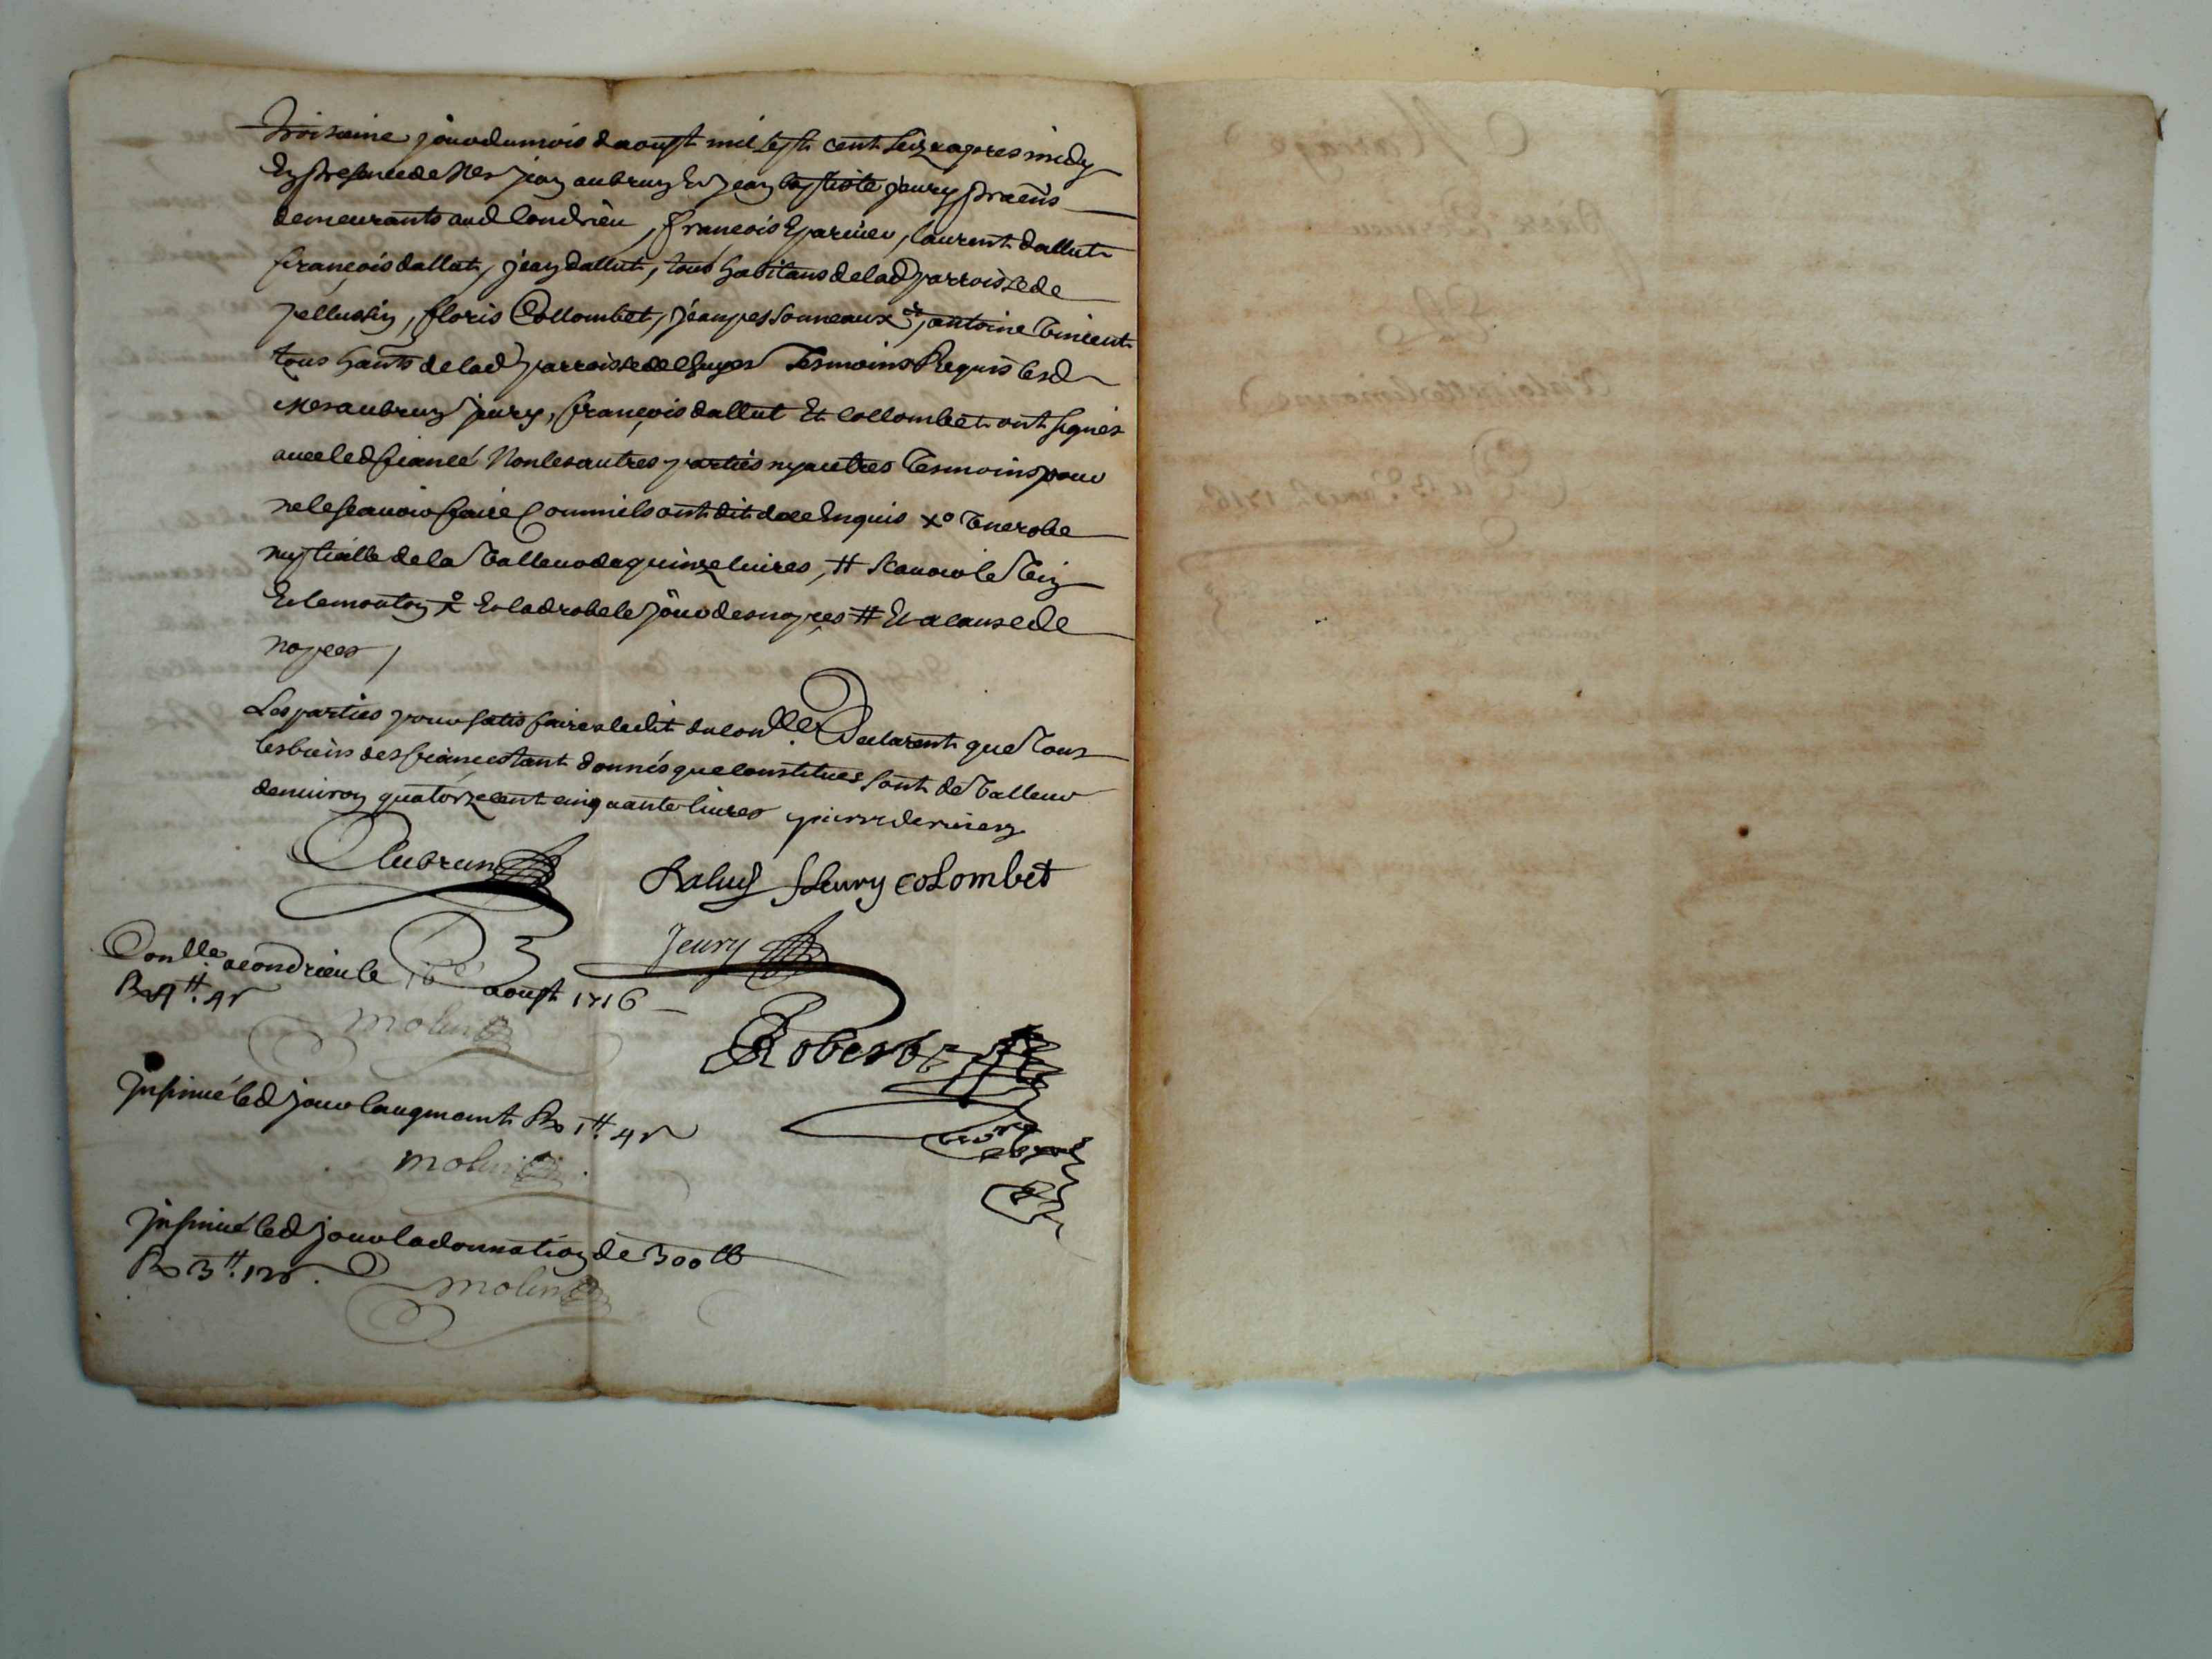 troiseine jour du mois daoust mil sept cent seize apres midy
En presence de Mes jean aubrun Et jean baptiste jeury praĉns
demeurants aud Condrieu, francois Eparvier, laurent dallut
françois dallut, jean dallut, tous habitans de lad parroisse de
pellussin, floris Collombet, jean pessonneaux &, antoine Vincent
tous hants de lad parroisse de Chuyer Tesmoins Requis lesd
Mes aubrun jeury, françois dallut Et Collombet ont signés
avec led fiancé Non les autres parties ny autres Tesmoins pour
ne le scavoir faire Comme ils ont dit de ce Enquis Xo Une robe
nuptialle de la Valleur de quinze livres, # scavoir le Vin
Et le mouton X Et lad robe le jour des nopçes # Et a cause de
nopces /
Les parties pour satisfaire a ledit du conlle Declarent que Tous
les biens des fiances tant donnés que constitues sont de Valleur
denviron quatorze cent cinquante livres pierre dervieu
Aubrun
Daluy fleury coLombet
Jeury
Conlle a condrieu le aoust 1716
R 4tt 4s
molin
Robert
Insinué led jour laugment R 1tt 4s
molin
Insinué led jour la donnation de 300 tt
R 3tt 12s.
molin
Mariage